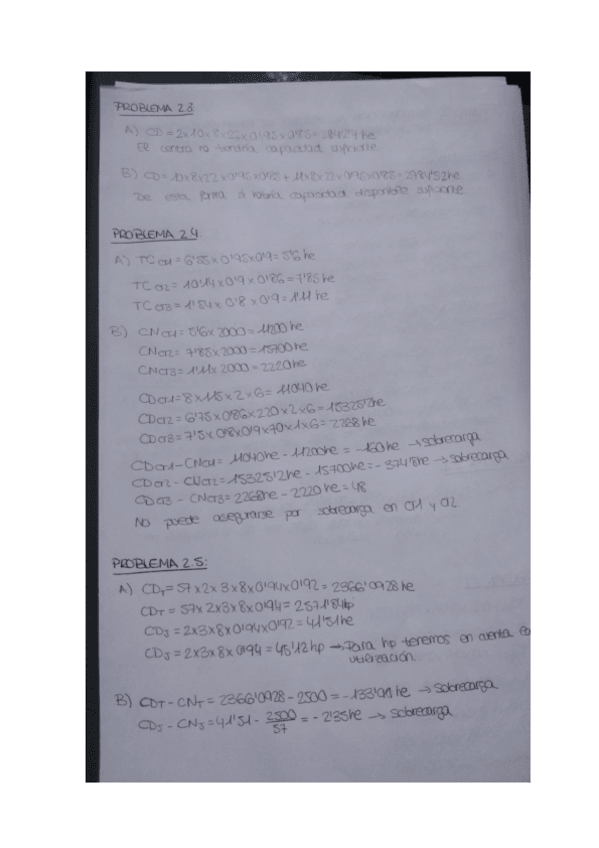 PROBLEMA 2.3
A) CD = 2x10x8x22x0'95x0'85 = 2842'4 he
El centro no tendría capacidad suficiente
B) CD = 11x8x22x0'95x0'85 + 11x8x22x0'95x0'85 =
De esta forma si habría capacidad disponible suficiente
PROBLEMA 2.4
A) TC CT1 = 6'55x0'95x0'9 = 5'6 he
TC CT2 = 10'14x0'9x0'86 = 7'85 he
TC CT3 = 1'54x0'8x0'9 = 1'11 he
B) CN CT1 = 5'6x2000 = 11200 he
CN CT2 = 7'85x2000 = 15700 he
CN CT3 = 1'11x2000 = 2220 he
CD CT1 = 8x115x2x6 = 11040 he
CD CT2 = 6'75x0'86x220x2x6 = 15325'2 he
CD CT3 = 7'5x0'8x0'9x70x1x6 = 2268 he
CD CT1 - CN CT1 = 11040 he - 11200 he = -160 he → sobrecarga
CD CT2 - CN CT2 = 15325'2 he - 15700 he = -374'8 he → sobrecarga
CD CT3 - CN CT3 = 2268 he - 2220 he = 48
No puede asegurarse por sobrecarga en CT1 y CT2
PROBLEMA 2.5:
A) CD T = 57x2x3x8x0'94x0'92 = 2366'0928 he
CD T = 57x2x3x8x0'94 = 2571'84 hp
CD J = 2x3x8x0'94x0'92 = 41'51 he
CD J = 2x3x8x0'94 = 45'12 hp → Para hp tenemos en cuenta
utilización
B) CD T - CN T = 2366'0928 - 2500 = -133'91 he → Sobrecarga
CD J - CN J = 41'51 - 2500/57 = -2'35 he → Sobrecarga